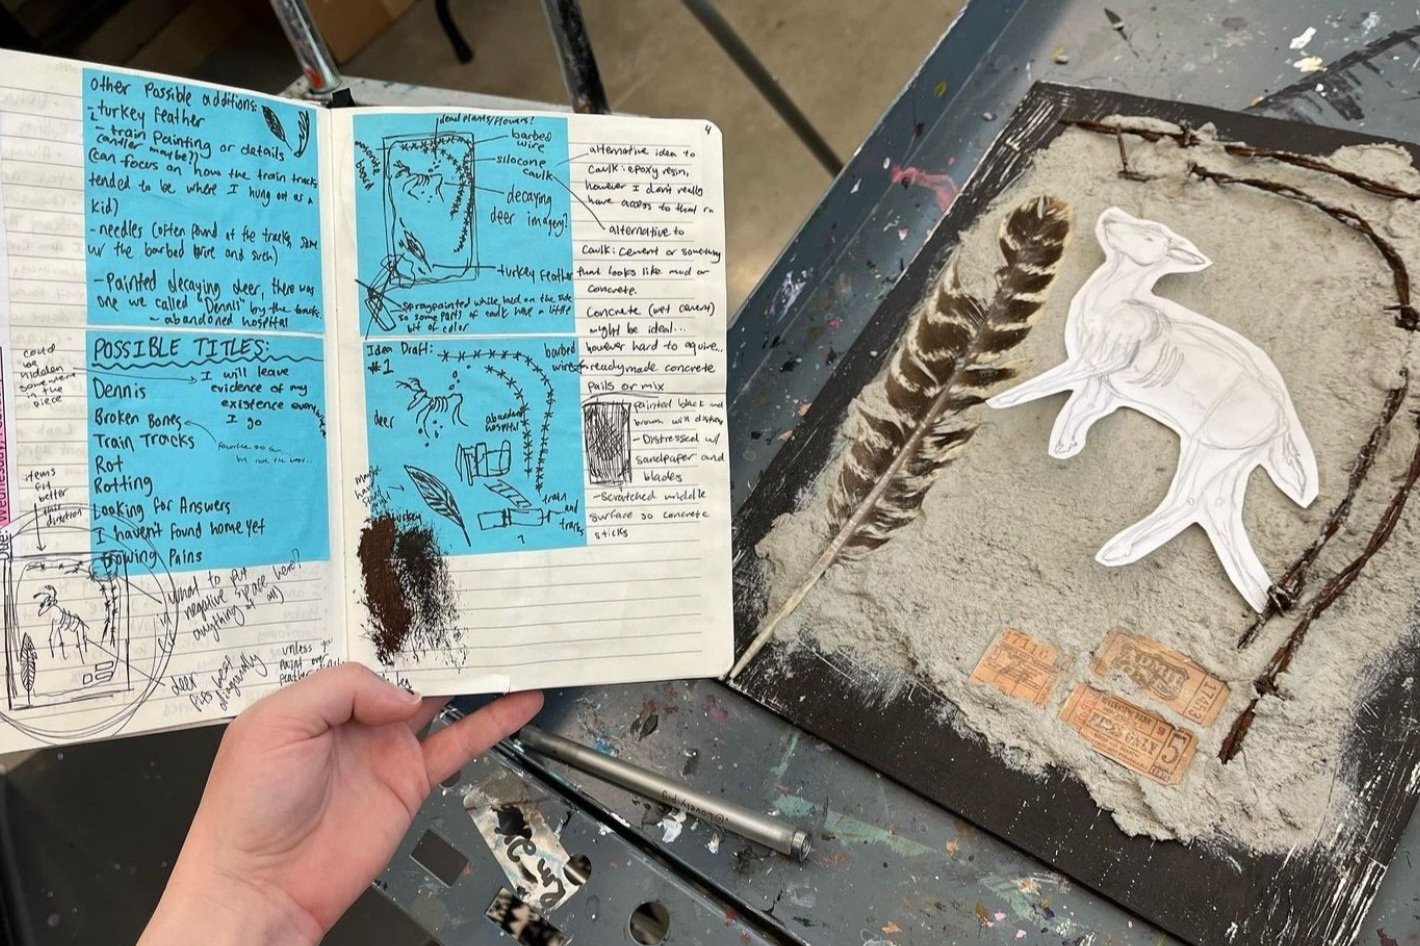 other possible additions:
- turkey feather
- train painting or details
(antler maybe?)
(can focus on how the train tracks
tended to be where I hung out as a
kid)
- needles (often found at the tracks, same
w/ the barbed wire and such)
- Painted decaying deer, there was
one we called "Dennis" by the tracks
- abandoned hospital
POSSIBLE TITLES:
could
be
hidden
somewhere
in the
piece
I will leave
evidence of my
existence everywhere
I go
Dennis
Broken Bones
favorite so far...
Train Tracks
Rot
Rotting
Looking for Answers
I haven't found home yet
Growing Pains
items
fit
better
this
direction
what to put
negative space here?
anything at all
deer
fits best
diagonally
unless you
paint over
feather
4
dead plants/flowers?
masonite
board
barbed
wire
silocone
caulk
decaying
deer imagery?
turkey feather
spraypainted while laid on the side
so some parts of caulk have a little
bit of color
alternative idea to
caulk: epoxy resin,
however I don't really
have access to that rn
alternative to
caulk: cement or something
that looks like mud or
concrete.
concrete (wet cement)
might be ideal...
however hard to aquire...
readymade concrete
pails or mix
Idea Draft:
#1
barbed
wire
deer
abandoned
hospital
train
and
tracks
turkey
?
painted black and
brown
- Distressed w/
sandpaper and
blades
- scratched middle
surface so concrete
sticks
1743
5